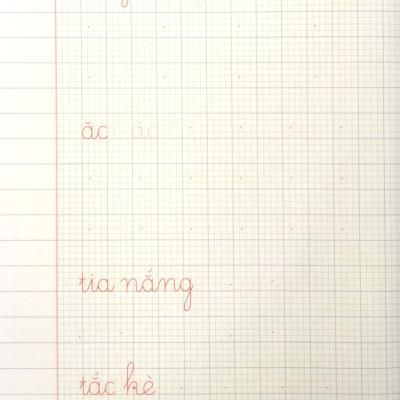 ăc ăc
tia nắng
tắc kè